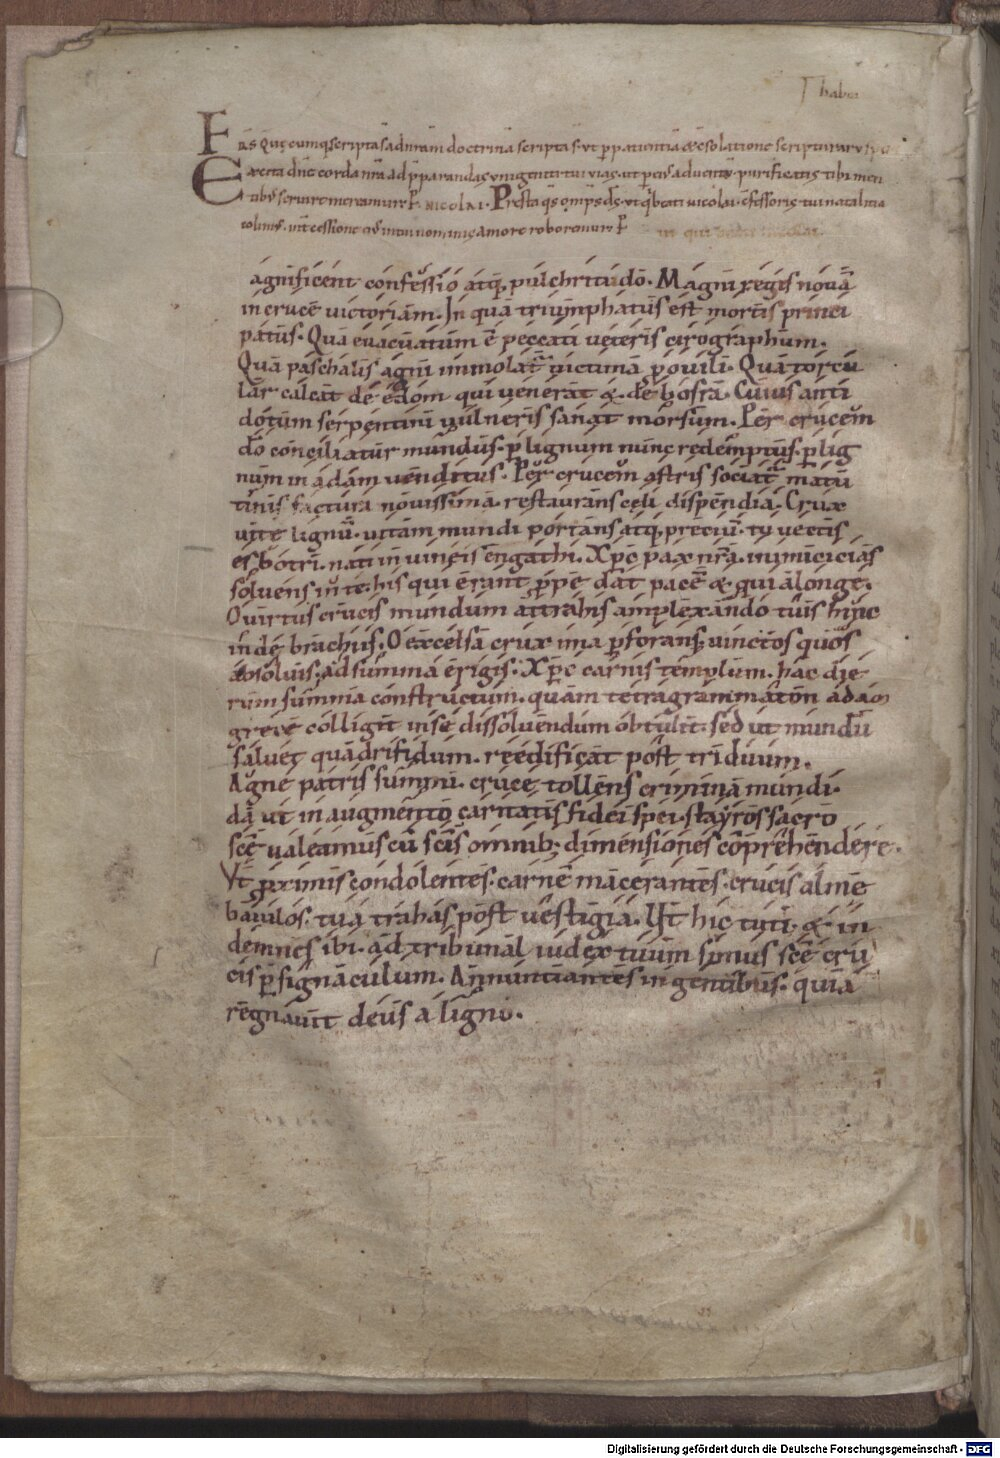 habes
Frs Quęcumq; scripta s̄ ad nr̄am doctrinā scripta s̄. vt p̱ patientiā & c̄solatione scripturarū
Excita dn̄e corda nr̄a ad p̄parandas vnigeniti tui vias. ut p̱ eius aduentū. purificatis tibi men
tib; seruire mereamur. P̱. NICOLAI. Presta q̄s omp̄s d̄s. vt q̄ beati nicolai. c̄fessoris tui natalitia
colim;. int̄cessione ei; in tui nominis amore roboremur. P̱
agnificent confessio atq; pulchritudo. Magni regis nouā
in crucē uictoriam. In quā triumphatus est mortis princi
patus. Quā euacuatum ē peccati ueteris cirographum.
Quā paschalis agni immolat̄ uictimā p̱ ouili. Quā torcu
lār calcat de edom qui uenerat & de bosra. Cuius anti
dotum serpentini uulneris sanat morsum. Per crucem
dō conciliatur mundus. p̱ lignum nunc redemptus. p̱ lig
num in adam uenditus. Per crucem astris sociat̄ matu
tinis factura nouissima. restaurans celi dispendia. Crux
uite lignū. uitam mundi portans atq; preciū. tu uectis
es botri. nati in uineis engathi. Xp̄c pax nr̄a. inimicicias
soluens in te. his qui erant p̱pe dat pacē & qui a longe.
O uirtus crucis mundum attrahis amplexando tuis hinc
inde brachiis. O excelsa crux ima p̱forans. uinctos quos
absoluis. ad summa erigis. Xp̄c carnis templum. hac die
rum summa constructum. quam tetragrammaton adam
grece colligit in se dissoluendum obtulit. sed ut mundū
saluet quadrifidum. reedificat post triduum.
Agne patris summi. cruce tollens crimina mundi.
dā ut in augmento caritatis fidei spei. stayros sacro
scē ualeamus cū scīs omnib; dimensiones cōprehendere.
Vt p̱ximis condolentes. carnē macerantes. crucis alme
baiulos. tua trahas post uestigia. Vt hic tuti. & in
demnes ibi. ad tribunal iudex tuum simus scē cru
cis p̱ signaculum. Annuntiantes in gentibus. quia
regnauit deus a ligno.
Digitalisierung gefördert durch die Deutsche Forschungsgemeinschaft - DFG